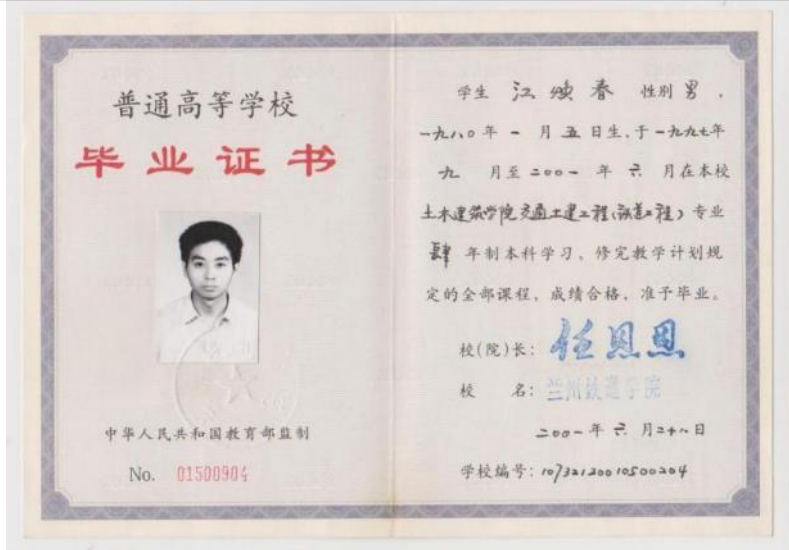 普通高等学校
毕业证书
中华人民共和国教育部监制
No. 01500904
学生 江焕春 性别 男，
一九八〇年 一 月 五 日生，于一九九七年
九 月至 二〇〇一 年 六 月在本校
土木建筑学院交通土建工程（隧道工程）专业
肆 年制本科学习，修完教学计划规
定的全部课程，成绩合格，准予毕业。
校(院)长：任恩恩
校 名：兰州铁道学院
二〇〇一年 六 月二十八日
学校编号：10732120010500204